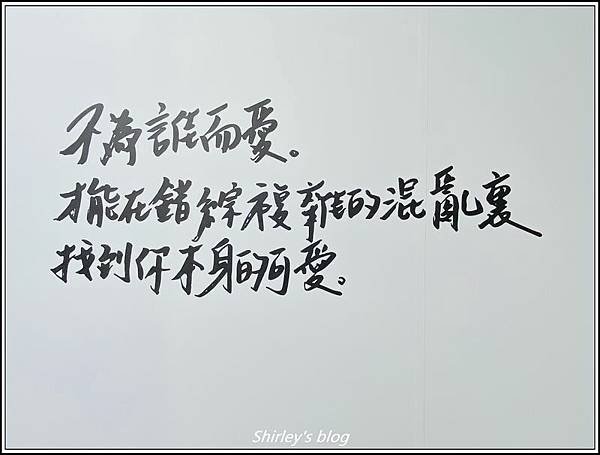 不為誰而愛。
才能在錯綜複雜的混亂裏
找到你本身的可愛。
Shirley's blog